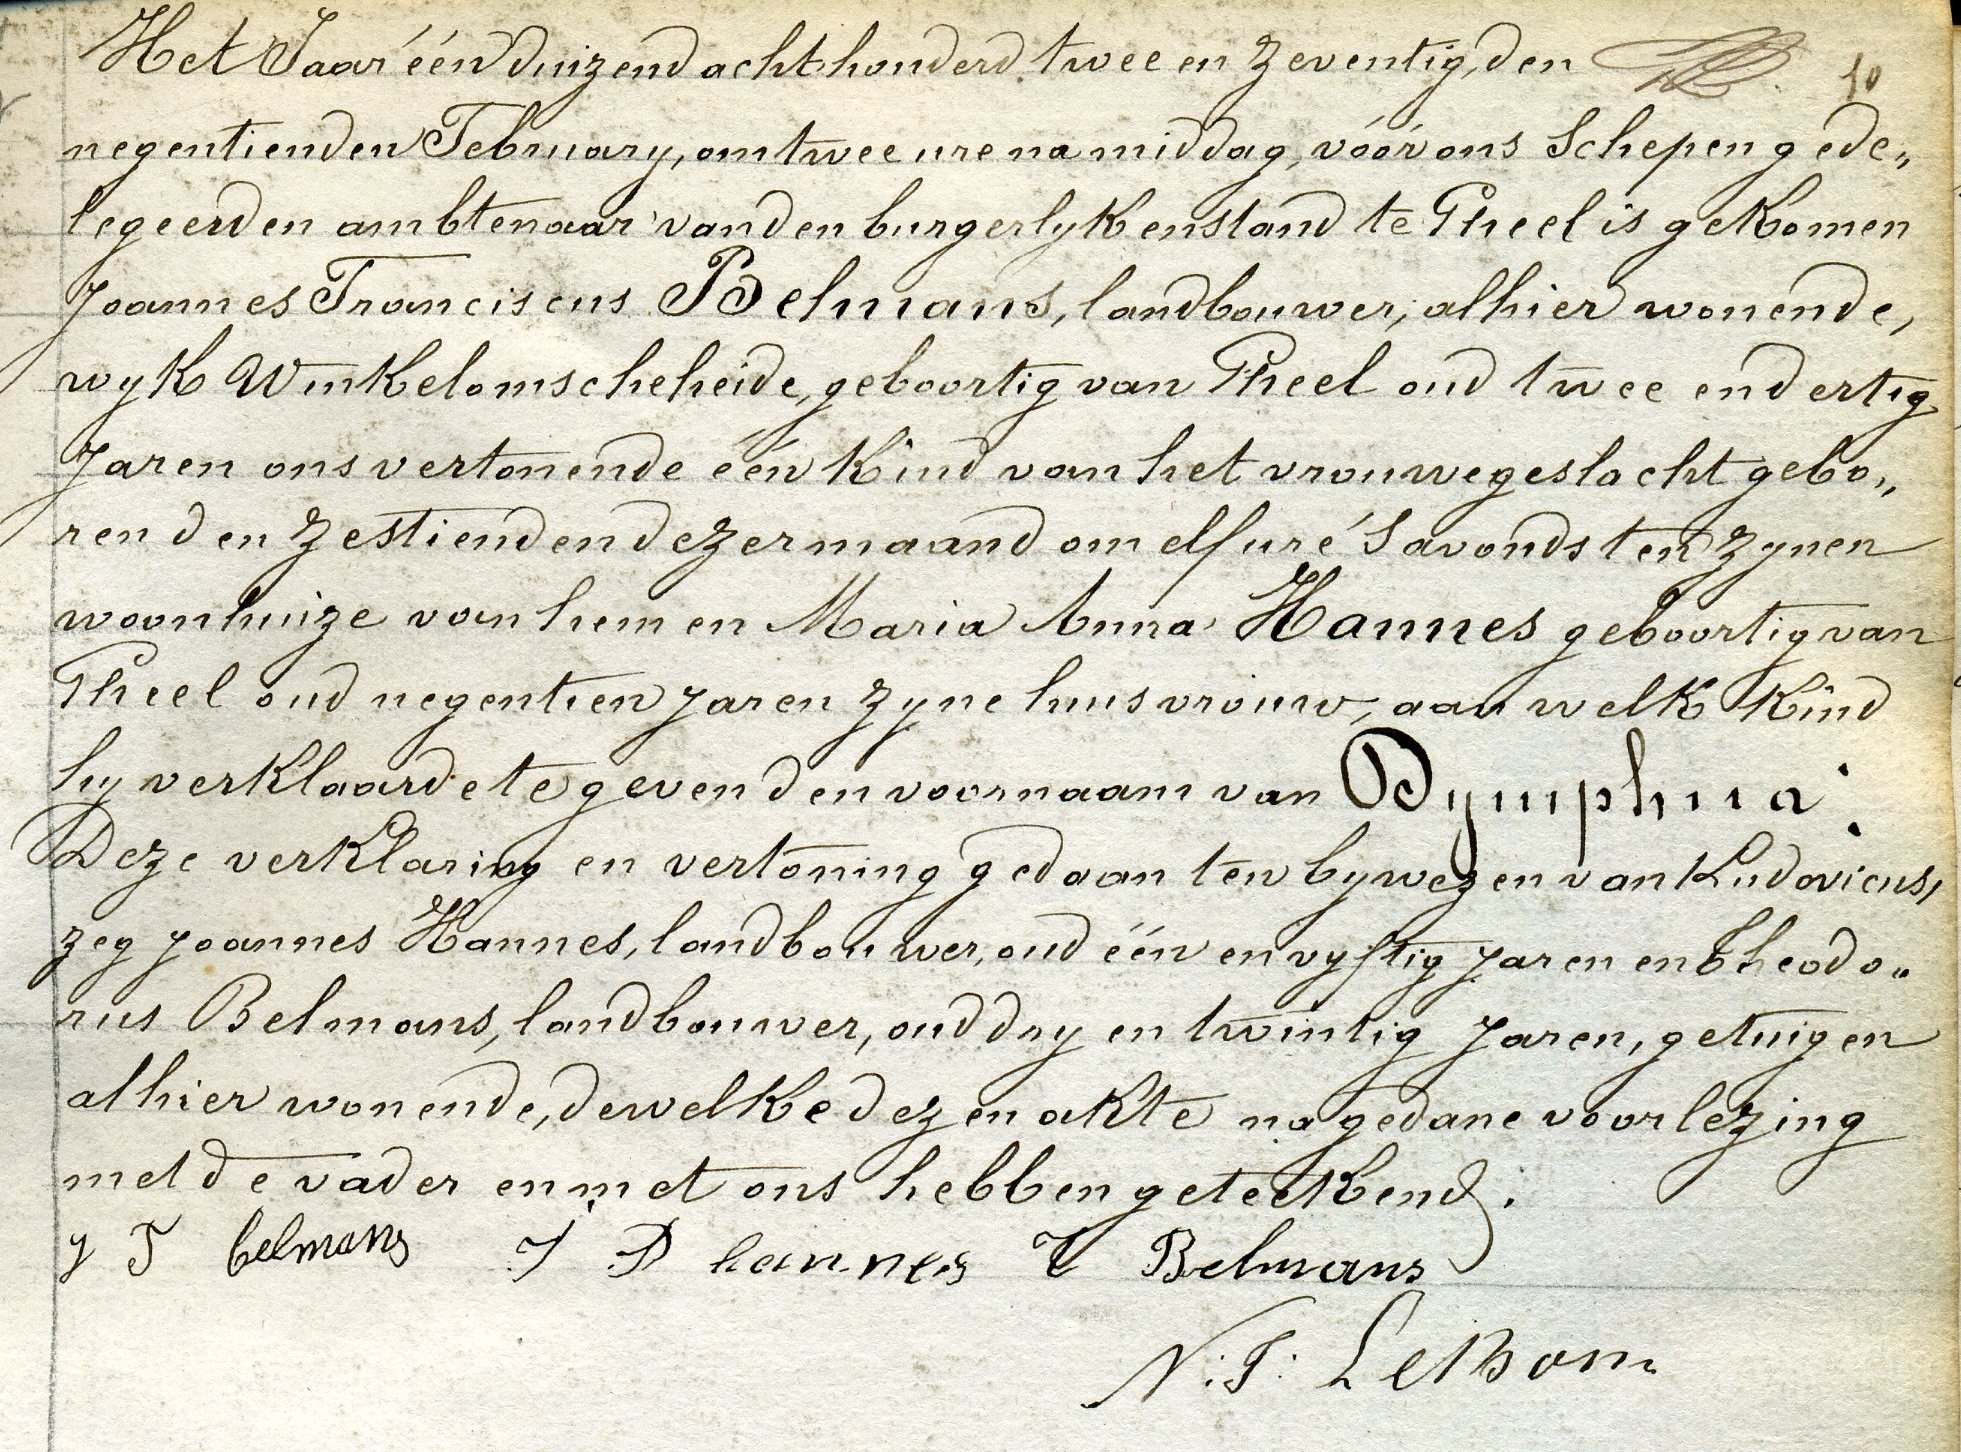 Het Jaar één duizend acht honderd twee en zeventig, den 10
negentienden February, om twee ure na middag, vóór ons Schepen gede„
legeerden ambtenaar van den burgerlyken stand te Gheel is gekomen
Joannes Franciscus Belmans, landbouwer, alhier wonende,
wyk Winkelomscheheide, geboortig van Gheel oud twee en dertig
Jaren ons vertonende één Kind van het vrouwegeslacht gebo„
ren den zestienden dezer maand om elf ure 's avonds ten zynen
woonhuize van hem en Maria Anna Hannes geboortig van
Gheel oud negentien jaren zyne huisvrouw, aan welk Kind
hy verklaarde te geven den voornaam van Dymphna.
Deze verklaring en vertoning gedaan ten bywezen van Ludovicus,
zeg joannes Hannes, landbouwer, oud één en vyftig jaren en Theodo„
rus Belmans, landbouwer, oud dry en twintig jaren, getuigen
alhier wonende, dewelke dezen akte na gedane voorlezing
met de vader en met ons hebben geteekend.
J F belmans J B hannes T Belmans